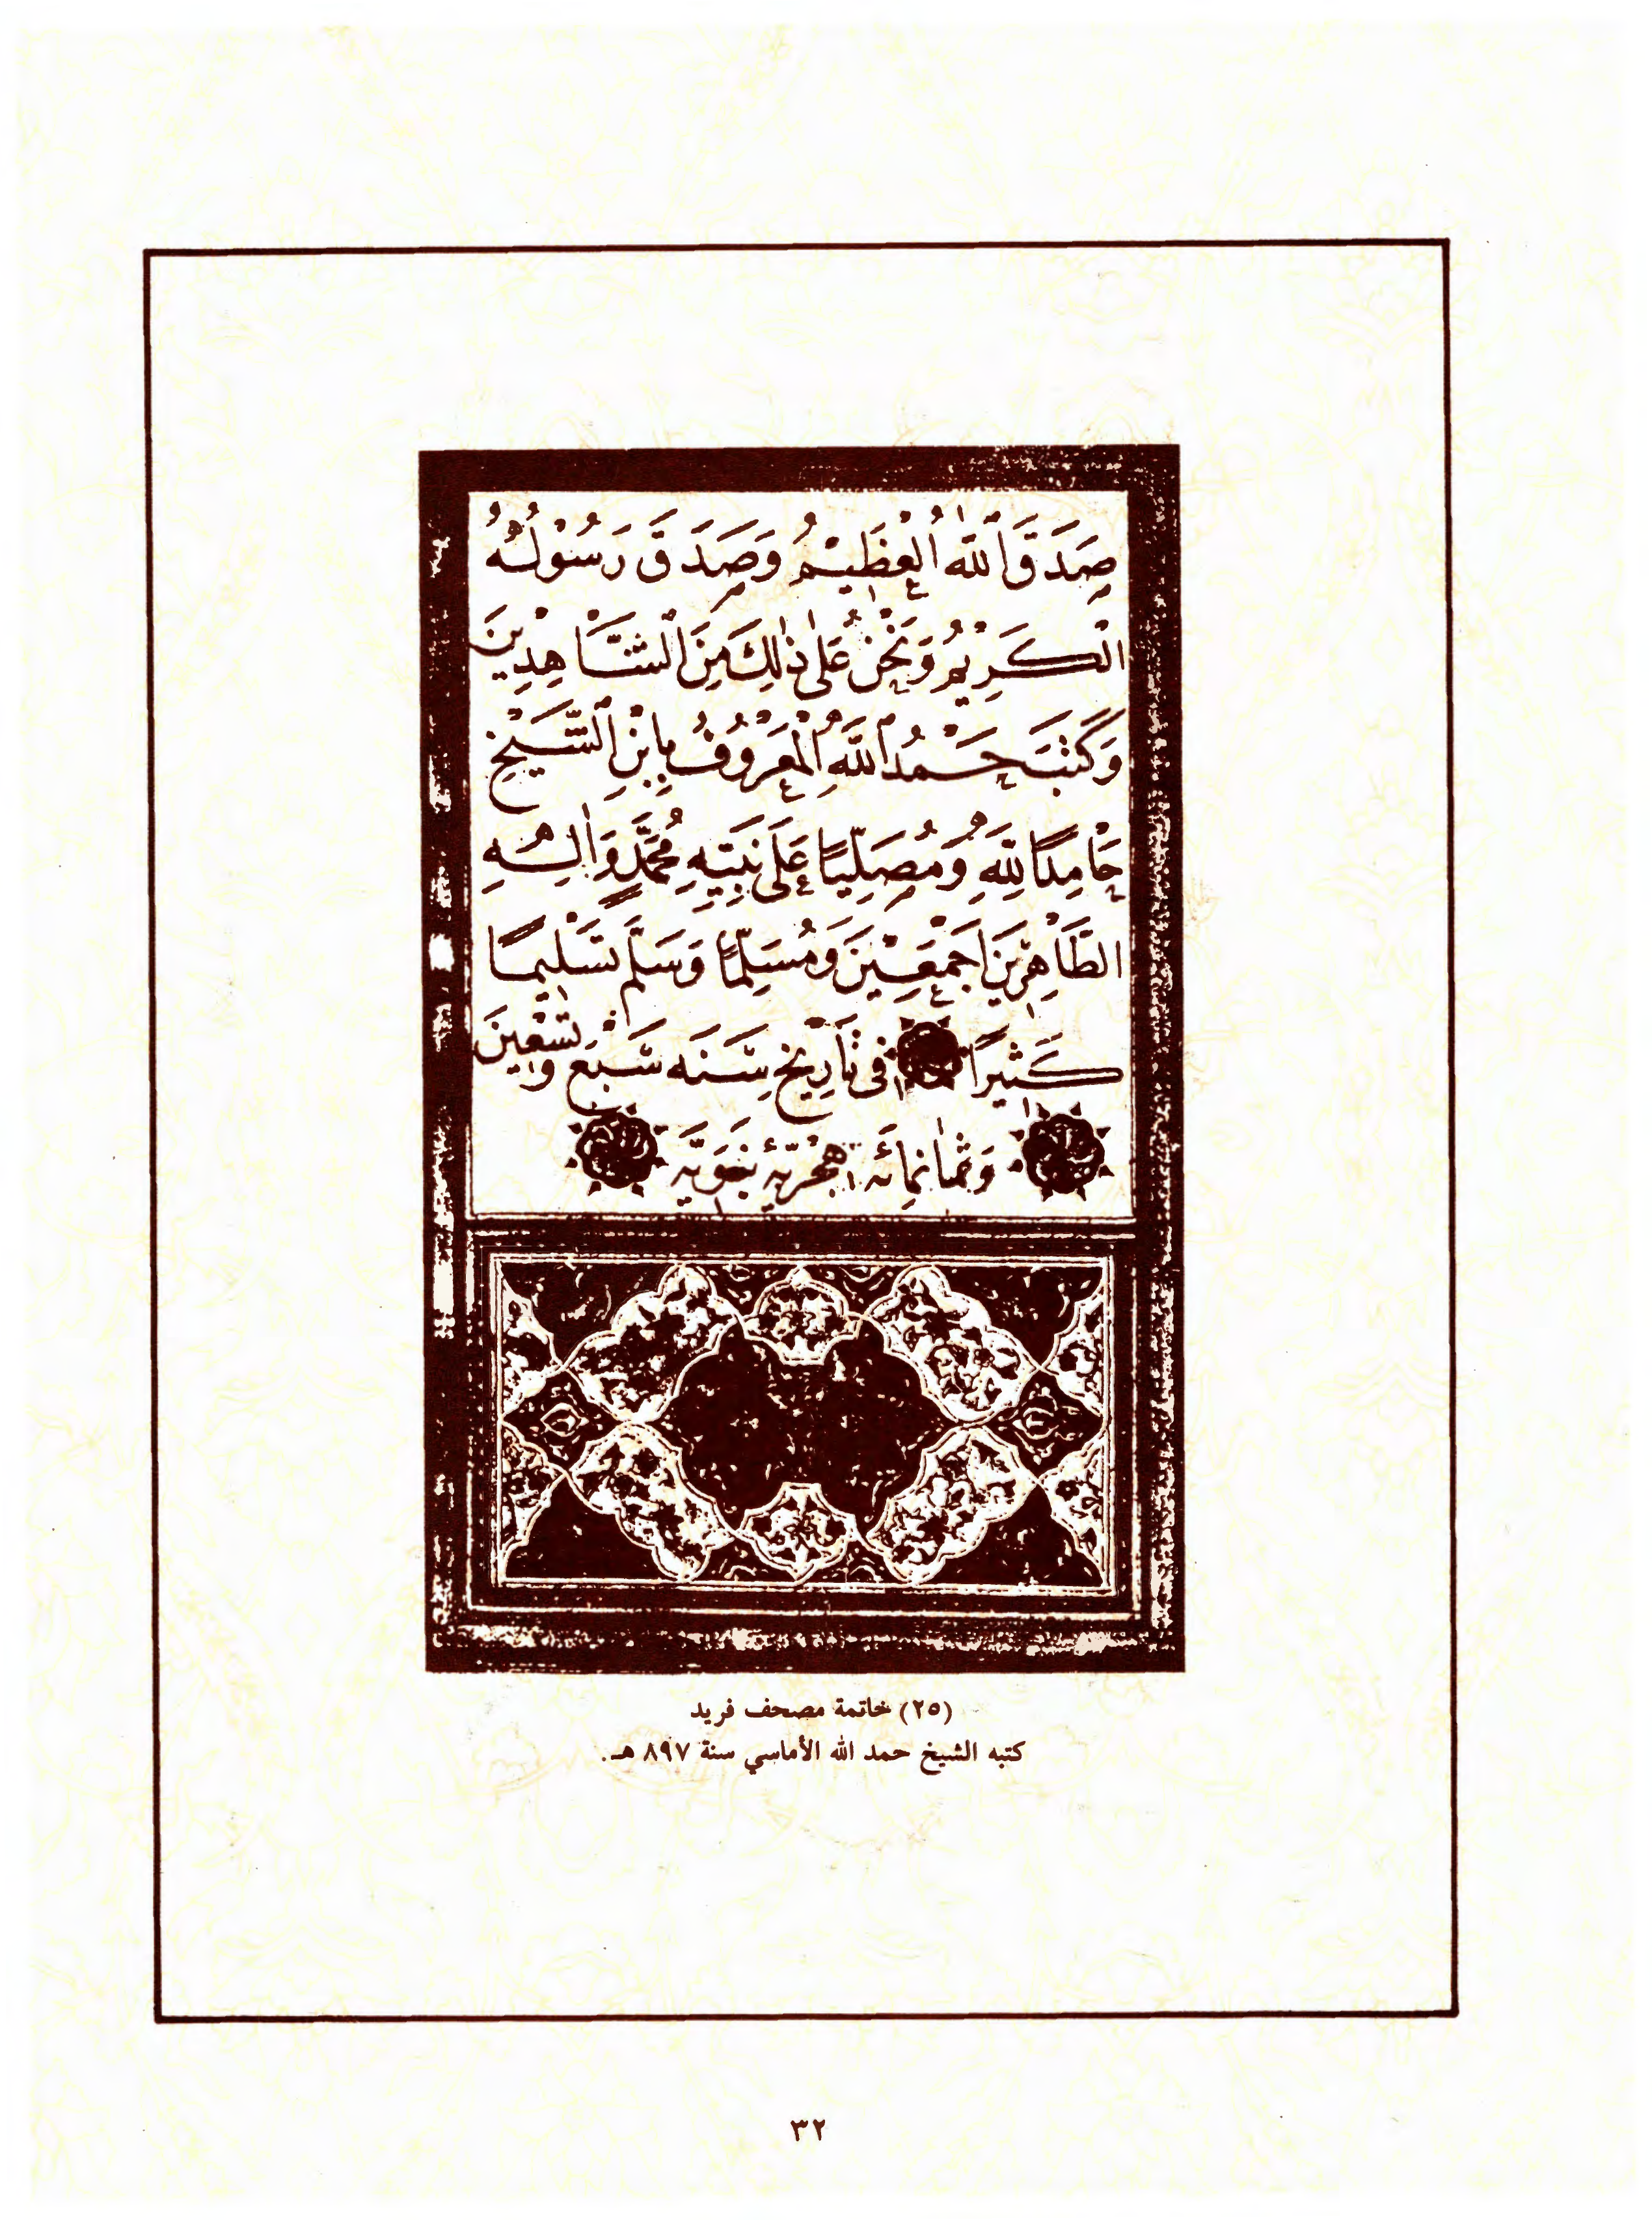 صَدَقَ اللّٰهُ الْعَظِيْمُ وَصَدَقَ رَسُوْلُهُ
الْكَرِيْمُ وَنَحْنُ عَلٰى ذٰلِكَ مِنَ الشَّاهِدِيْنَ
وَكَتَبَ حَمْدُ اللّٰهِ الْمَعْرُوْفُ بِابْنِ الشَّيْخِ
حَامِدًا لِلّٰهِ وَمُصَلِّيًا عَلَى نَبِيِّهِ مُحَمَّدٍ وَاٰلِهِ
الطَّاهِرِيْنَ اَجْمَعِيْنَ وَمُسَلِّمًا وَسَلَّمَ تَسْلِيمًا
كَثِيرًا فى تَارِيْخِ سَنَه سَبْعَ وَتِسْعِينَ
وَثَمَانمِائَه هِجْرِيَّه نَبَوِيَّه
(٢٥) خاتمة مصحف فريد
كتبه الشيخ حمد الله الأماسي سنة ٨٩٧ هـ.
٣٢